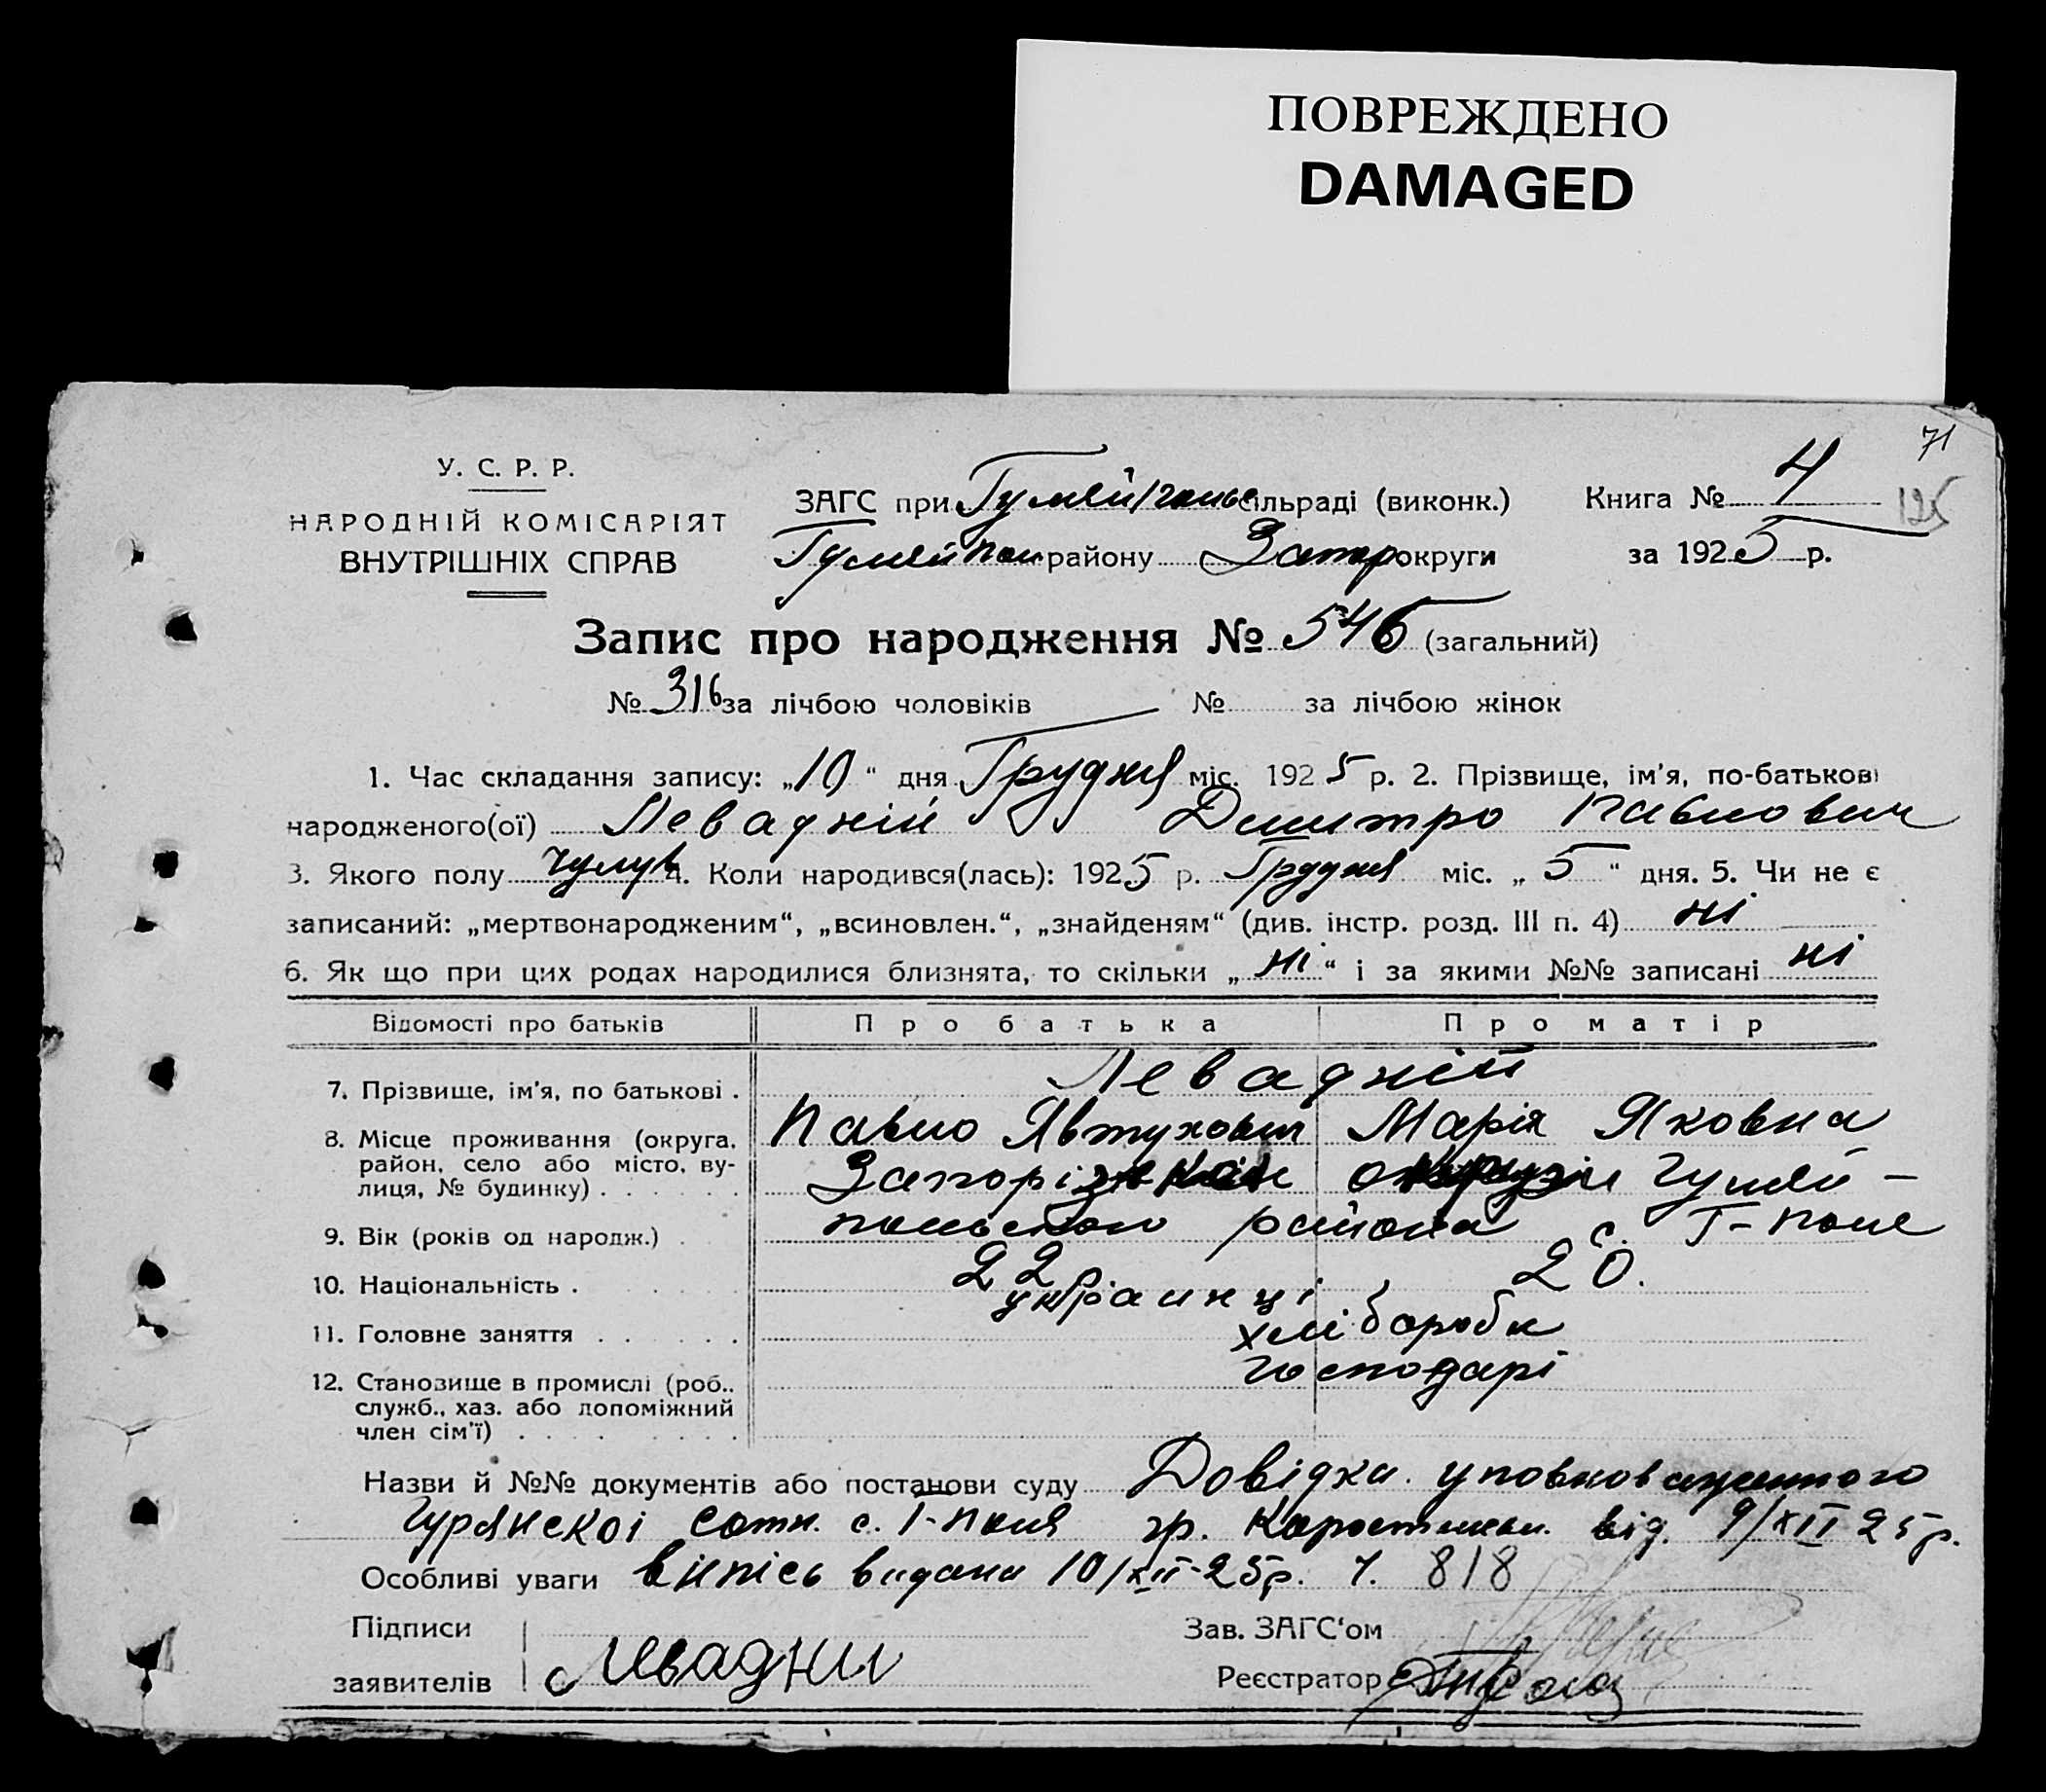 ПОВРЕЖДЕНО
DAMAGED
71
У. С. Р. Р.
НАРОДНІЙ КОМІСАРІЯТ
ВНУТРІШНІХ СПРАВ
ЗАГС при Гуляйпільс сільраді (виконк.)
Гуляйпол району Запор округи
Книга № 4
125
за 1925 р.
Запис про народження № 546 (загальний)
№ 316 за лічбою чоловіків № за лічбою жінок
1. Час складання запису: „10“ дня Грудня міс. 1925 р. 2. Прізвище, ім'я, по-батькові
народженого(ої) Левадній Дмитро Павлович
3. Якого полу 4. Коли народився(лась): 1925 р. Грудня міс. „5“ дня. 5. Чи не є
записаний: „мертвонародженим“, „всиновлен.“, „знайденям“ (див. інстр. розд. III п. 4) ні
6. Як що при цих родах народилися близнята, то скільки „ні“ і за якими №№ записані ні
Відомості про батьків Про батька Про матір
7. Прізвище, ім'я, по батькові . Левадній
Павло Явтухович Марія Яковна
8. Місце проживання (округа, район, село або місто, вулиця, № будинку) . . . . . .
Запорізькоі округи Гуляй-
польского района с. Г-Поле
9. Вік (років од народж.) . 22 20.
10. Національність . украинці
11. Головне заняття . . . . . . хлібороби
12. Становище в промислі (роб., служб., хаз. або допоміжний член сім'ї) . . . . . . господарі
Назви й №№ документів або постанови суду Довідка уповноваженного
Гурянскоі сотн. с. Г-Поля гр. від. 9/XII 25 р.
Особливі уваги випісь видана 10/XII-25р. Ч. 818
Підписи
заявителів
Левадни
Зав. ЗАГС'ом
Реєстратор